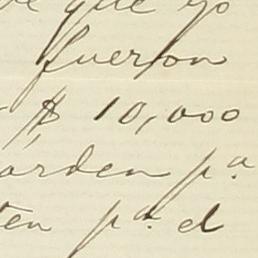 que yo
fueron
$ 10,000
órden pª
pª. el